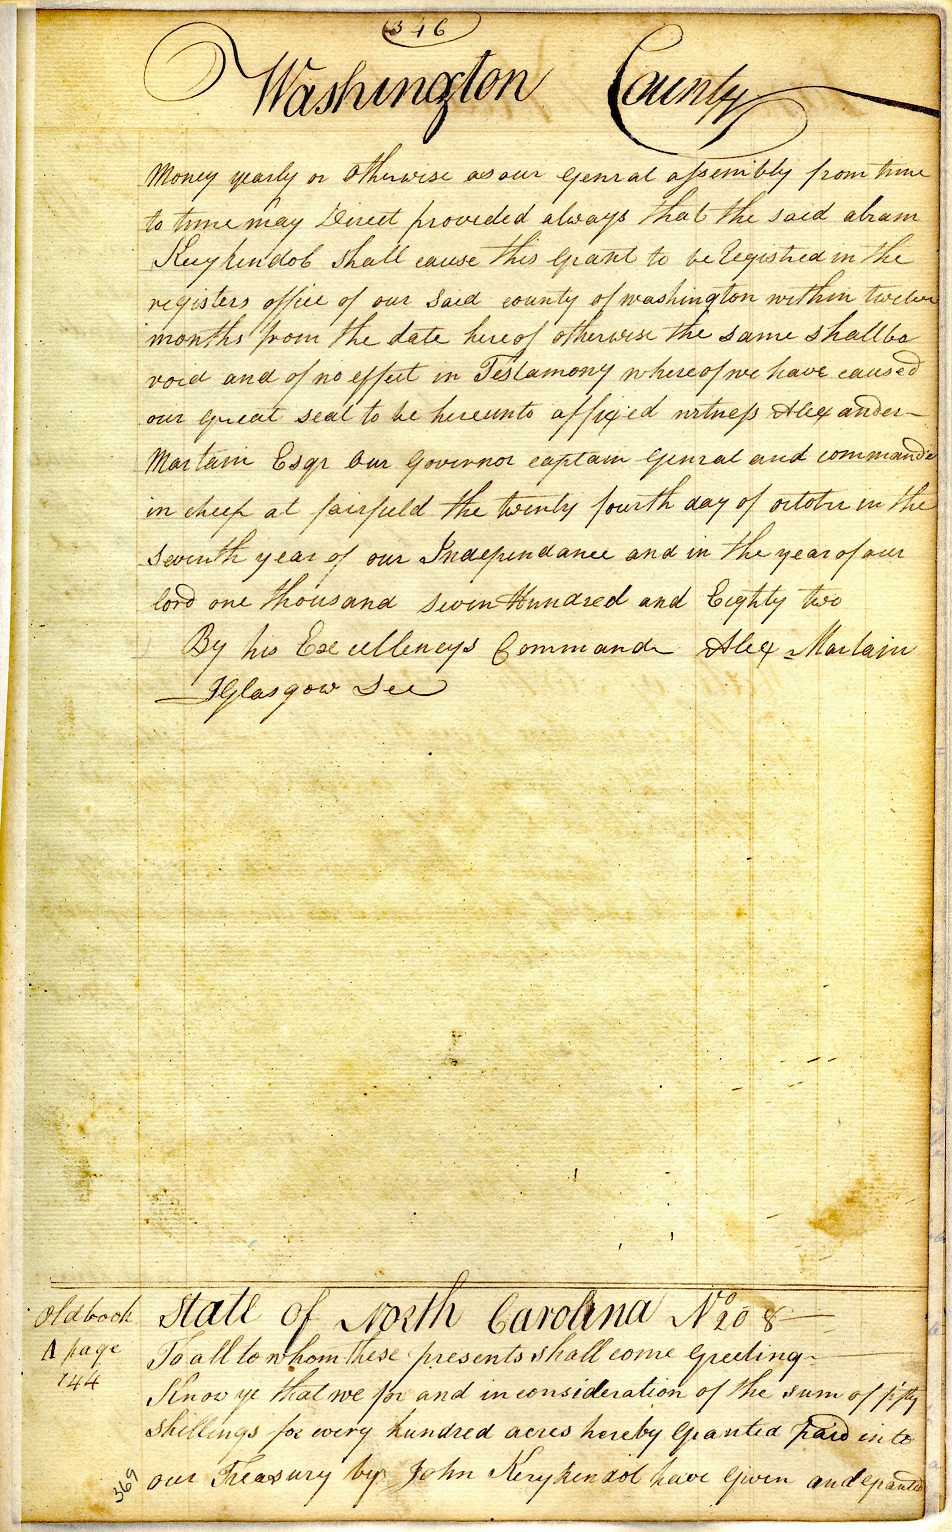 346
Washington County
Money yearly or otherwise as our genral assembly from time
to time may Direct provided always that the said abram
Keerykendol shall cause this grant to be Registred in the
registers office of our said county of washington within twelve
months from the date hereof otherwise the same shall be
void and of no effect in Testamony whereof we have caused
our great seal to be hereunto affixed witness Alexander
Martain Esqr Our Governor captain genral and commande
in cheef at fairfield the twenty fourth day of octobr in the
seventh year of our Independance and in the year of our
lord one thousand seven Hundred and Eighty two
By his Excellencys Command Alex Martain
JGlasgow Sec
Old book
A page
144
State of North Carolina No 208
To all to whom these presents shall come Greeting
Know ye that we for and in consideration of the sum of fifty
shillings for every hundred acres hereby granted paid into
our Treasury by John Kerykendol have given and granted
369